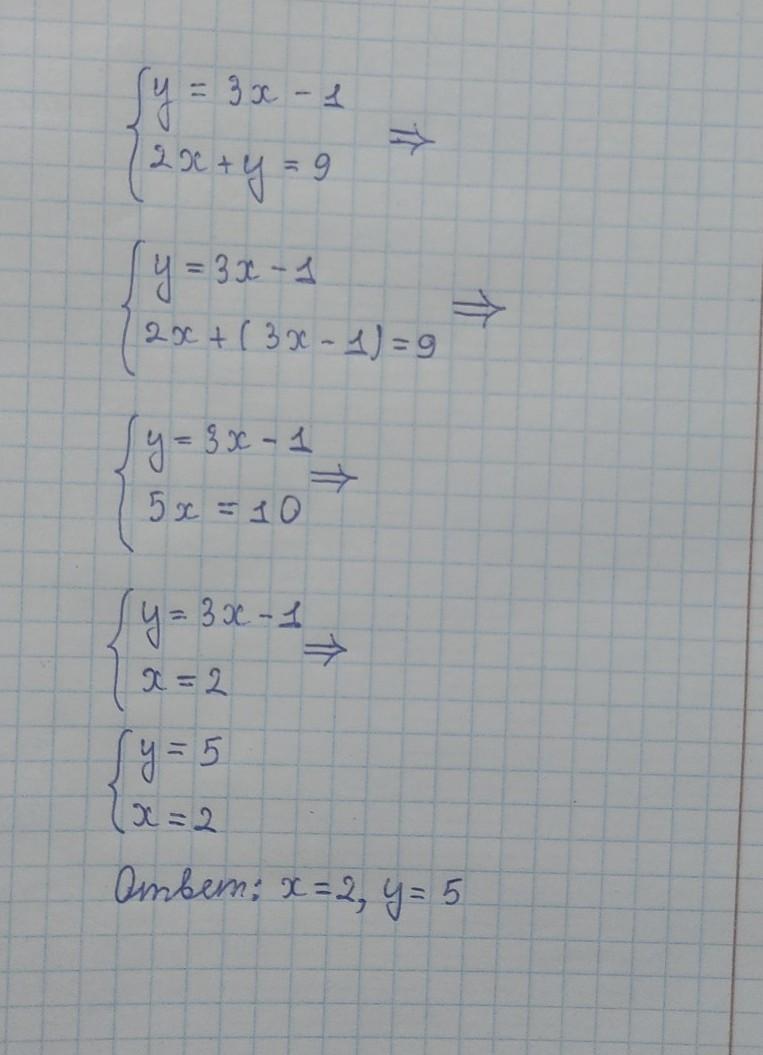 y = 3x - 1
2x + y = 9 ⇒
y = 3x - 1
2x + (3x - 1) = 9 ⇒
y = 3x - 1
5x = 10 ⇒
y = 3x - 1
x = 2 ⇒
y = 5
x = 2
Ответ: x = 2, y = 5